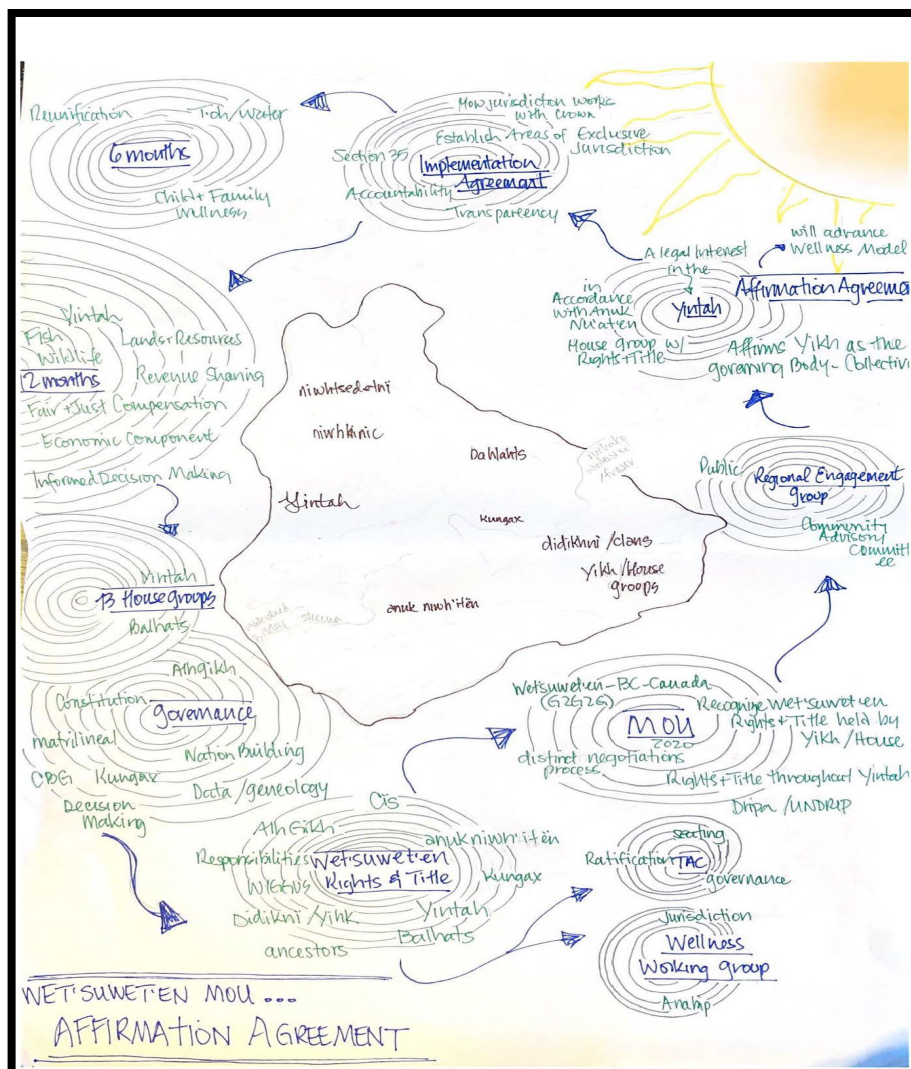 Reunification
Toh/Water
6 months
Child + Family
Wellness
How jurisdiction works
with crown
Establish Areas of Exclusive
Jurisdiction
Section 35
Implementation
Agreement
Accountability
Transpareency
will advance
Wellness Model
A legal Interest
in the
Affirmation Agreeme
in
Accordance
with Anuk
Nu'at'en
Yintah
House group w/
Rights + Title
Affirms Yikh as the
governing Body - Collectiv
Yintah
Fish
Wildlife
Lands + Resources
2 months
Revenue Sharing
Fair + Just Compensation
Economic Component
Informed Decision Making
niwhkinic
Yintah
Kungax
didikhni /clans
Yikh/House
groups
skeena
Public
Regional Engagement
group
Community
Advisory
Committ
ee
Yintah
13 House groups
Balhats
Constitution
governance
matrilineal
Nation Building
Kungax
Data/geneology
Decision
Making
Wet'suwet'en-BC-Canada
(G2G2G)
MOU
2020
Recognize Wet'suwet'en
Rights + Title held by
Yikh/House
distinct negotiations
process
Rights + Title throughout Yintah
Dripa /UNDRIP
Cis
anuk niwh'itën
Responsibilities
Wet'suwet'en
Rights & Title
Kungax
Didikni /Yihk
Yintah
Balhats
ancestors
seating
Ratification
TAC
governance
Jurisdiction
Wellness
Working group
WET'SUWET'EN MOU ...
AFFIRMATION AGREEMENT